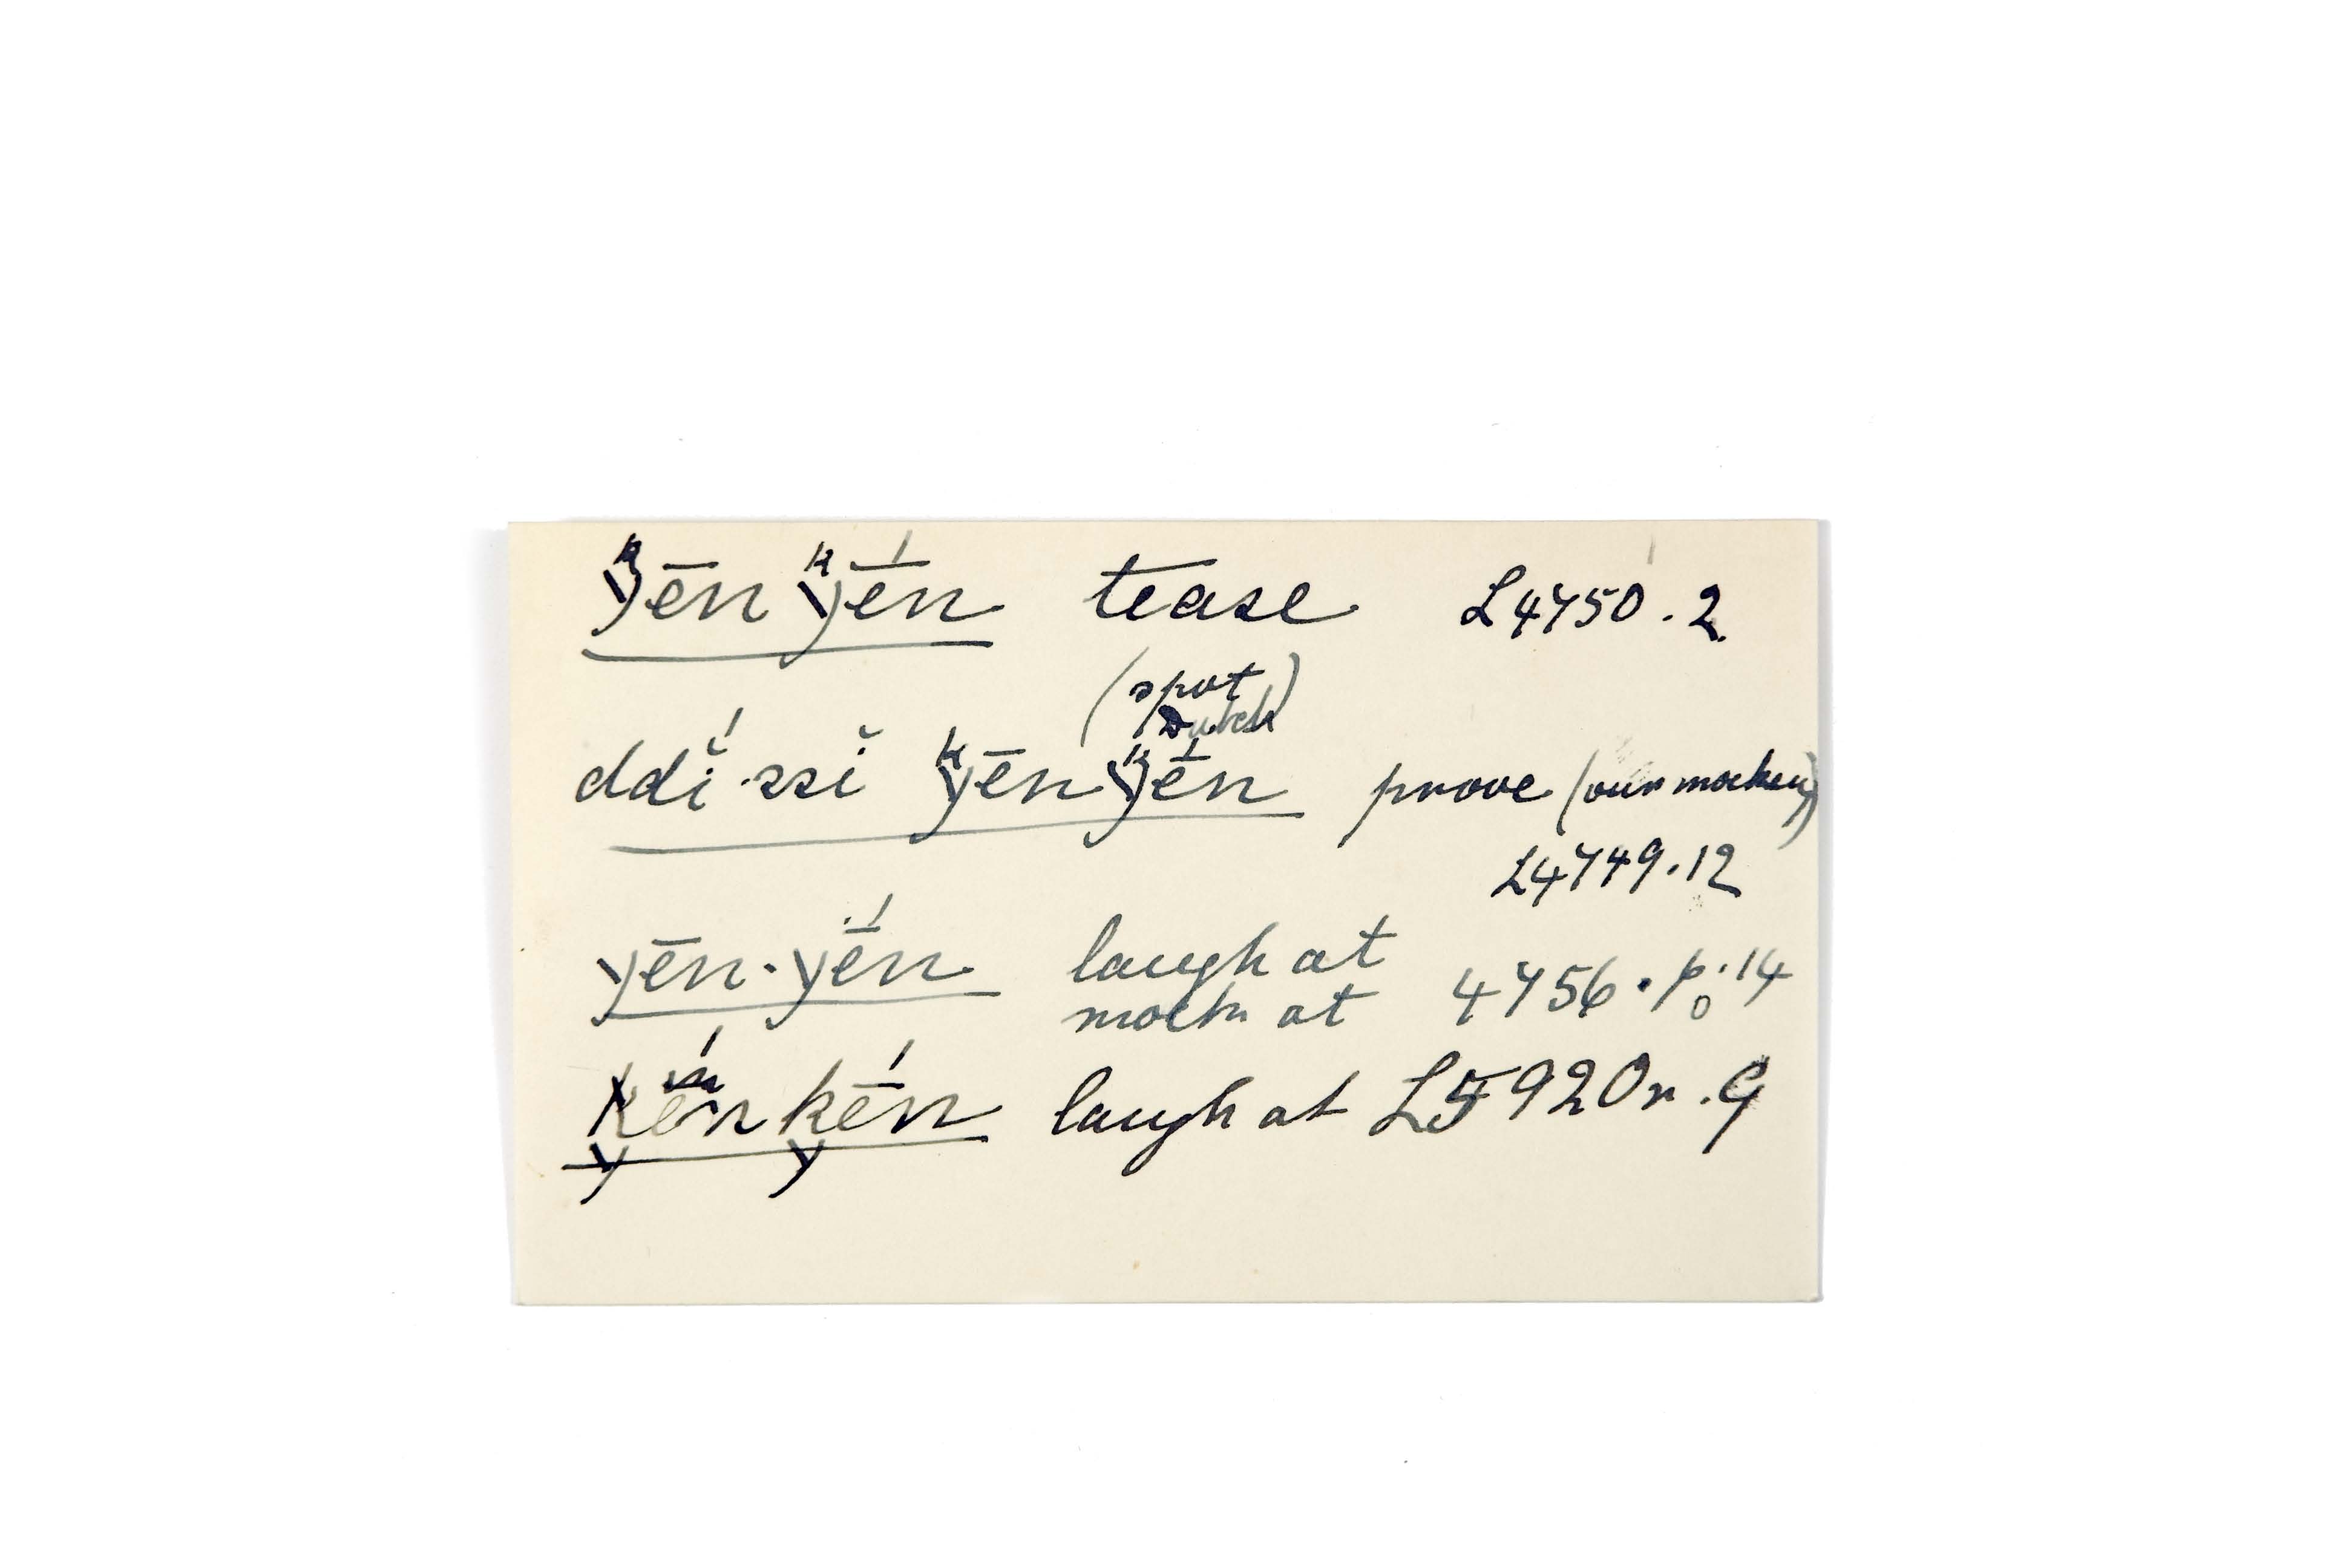 k͏yēn k͏yḗn tease L4750.2
(spot
Dutch)
ddĭ́·ssĭ k͏yēnk͏yḗn prove (our mockery)
L4749.12
yēn·yḗn laugh at
mock at 4756.p.14
kḗnkḗn laugh at L5920r.9
y y